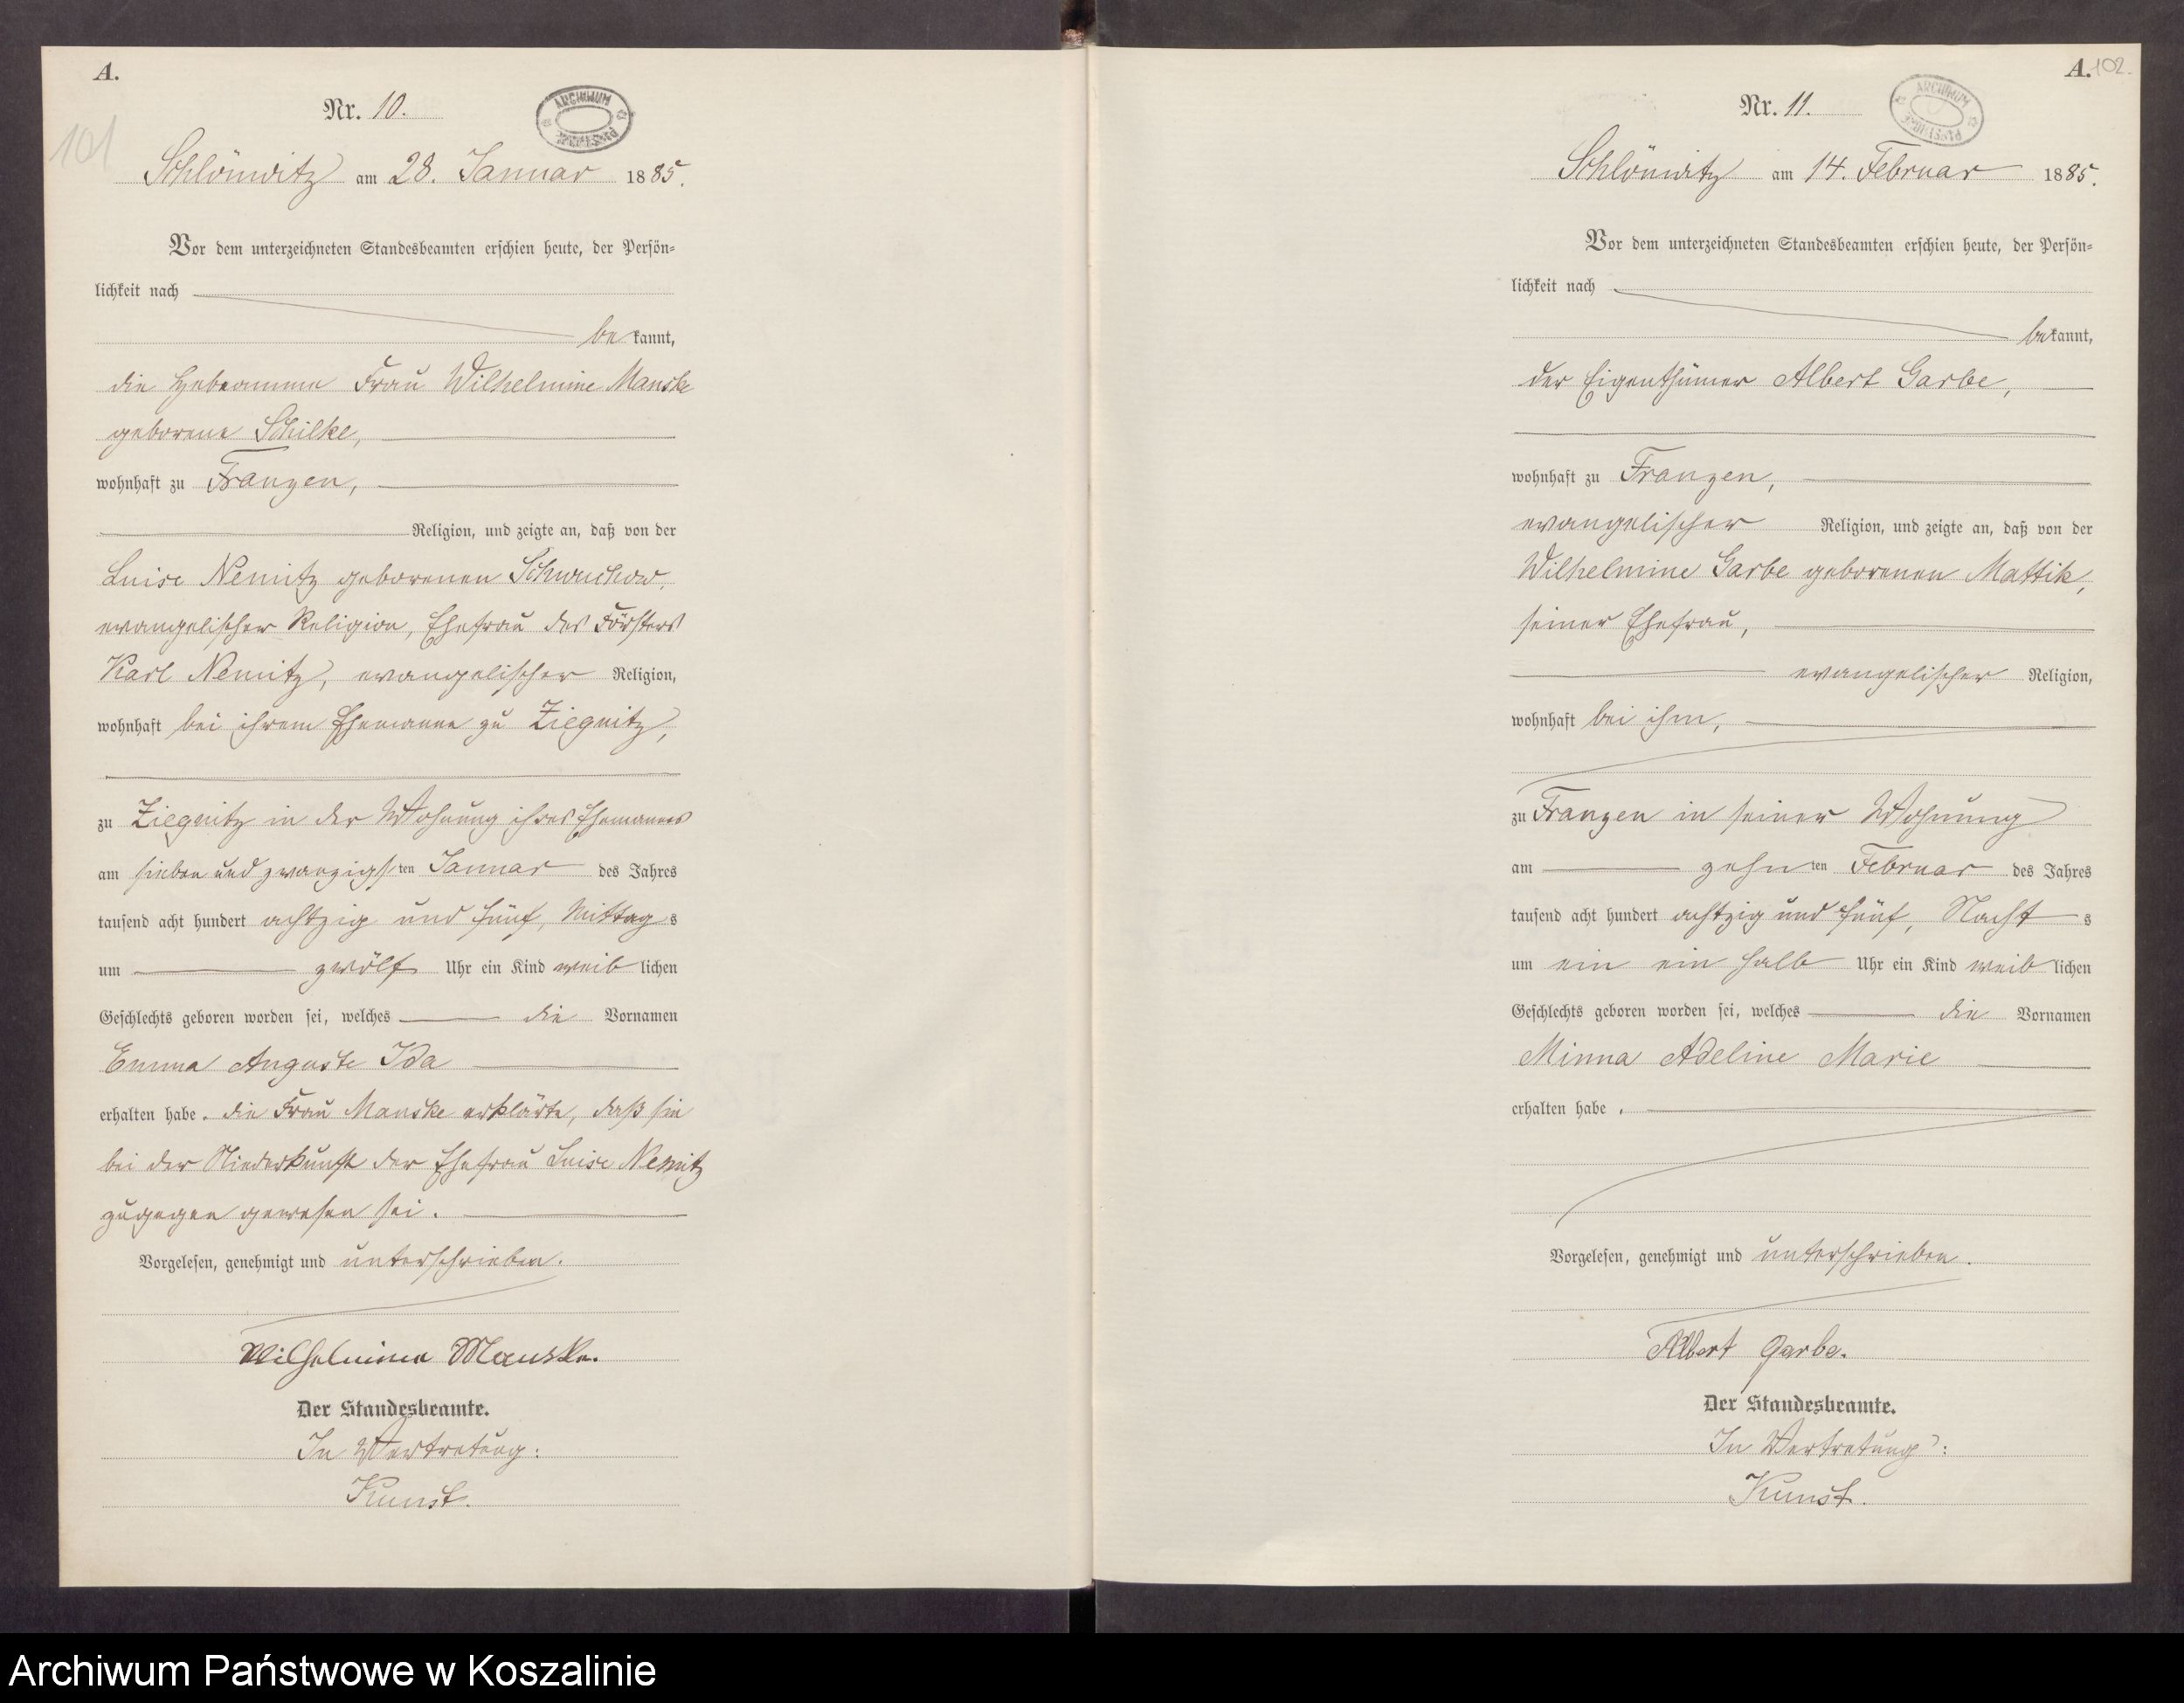 A.
Nr. 10.
101
ARCHIWUM PAŃSTWOWE
Schlönwitz am 28. Januar 1885.
Vor dem unterzeichneten Standesbeamten erschien heute, der Persön=
lichkeit nach
bekannt,
die Hebeamme Frau Wilhelmine Manske
geborene Schilke,
wohnhaft zu Franzen,
Religion, und zeigte an, daß von der
Luise Nemitz geborenen Schwuchow,
evangelischer Religion, Ehefrau des Försters
Karl Nemitz, evangelischer Religion,
wohnhaft bei ihrem Ehemanne zu Ziegnitz,
zu Ziegnitz in der Wohnung ihres Ehemannes
am sieben und zwanzigsten Januar des Jahres
tausend acht hundert achtzig und fünf, Mittags
um zwölf Uhr ein Kind weiblichen
Geschlechts geboren worden sei, welches die Vornamen
Emma Auguste Ida
erhalten habe. die Frau Manske erklärte, daß sie
bei der Niederkunft der Ehefrau Luise Nemitz
zugegen gewesen sei.
Vorgelesen, genehmigt und unterschrieben.
Wilhelmine Manske.
Der Standesbeamte.
In Vertretung:
Kunst.
A. 102.
Nr. 11.
ARCHIWUM PAŃSTWOWE
Schlönwitz am 14. Februar 1885.
Vor dem unterzeichneten Standesbeamten erschien heute, der Persön=
lichkeit nach
bekannt,
der Eigenthümer Albert Garbe,
wohnhaft zu Franzen,
evangelischer Religion, und zeigte an, daß von der
Wilhelmine Garbe geborenen Mattik,
seiner Ehefrau,
evangelischer Religion,
wohnhaft bei ihm,
zu Franzen in seiner Wohnung
am zehnten Februar des Jahres
tausend acht hundert achtzig und fünf, Nachts
um ein ein halb Uhr ein Kind weiblichen
Geschlechts geboren worden sei, welches die Vornamen
Minna Adeline Marie
erhalten habe.
Vorgelesen, genehmigt und unterschrieben.
Albert Garbe.
Der Standesbeamte.
In Vertretung:
Kunst.
Archiwum Państwowe w Koszalinie